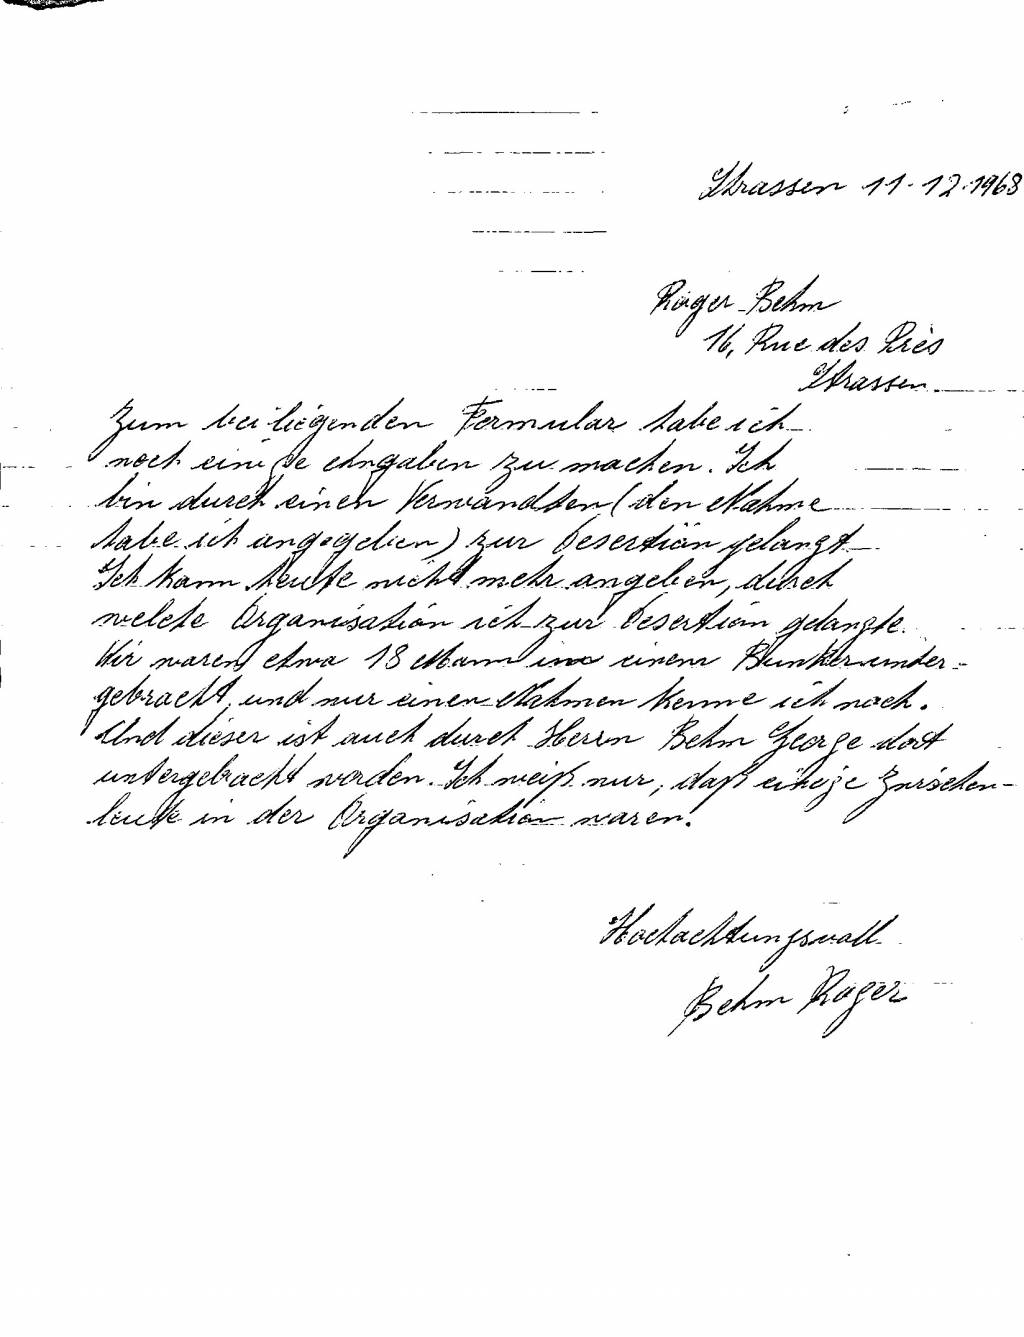 Strassen 11.12.1968
Roger Behm
16, Rue des Près
Strassen.
Zum beiliegenden Formular habe ich
noch einige Angaben zu machen. Ich
bin durch einen Verwandten (den Nahme
habe ich angegeben) zur Desertion gelangt
Ich kann heute nicht mehr angeben, durch
welche Organisation ich zur Desertion gelangte.
Wir waren etwa 18 Mann in einem Bunker under-
gebracht, und nur einen Nahmen kenne ich noch.
Und dieser ist auch durch Herrn Behm George dort
untergebracht worden. Ich weiß nur, daß einige
leute in der Organisation waren.
Hochachtungsvoll
Behm Roger